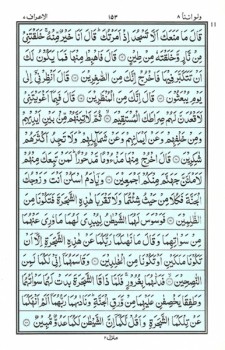 ولواننا ٨ ١٥٣ الاعراف ٧
قَالَ مَا مَنَعَكَ اَلَّا تَسْجُدَ اِذْ اَمَرْتُكَ ؕ قَالَ اَنَا خَيْرٌ مِّنْهُ ۚ خَلَقْتَنِيْ
مِنْ نَّارٍ وَّخَلَقْتَهٗ مِنْ طِيْنٍ ۝ قَالَ فَاهْبِطْ مِنْهَا فَمَا يَكُوْنُ لَكَ
اَنْ تَتَكَبَّرَ فِيْهَا فَاخْرُجْ اِنَّكَ مِنَ الصّٰغِرِيْنَ ۝ قَالَ اَنْظِرْنِيْۤ اِلٰى
يَوْمِ يُبْعَثُوْنَ ۝ قَالَ اِنَّكَ مِنَ الْمُنْظَرِيْنَ ۝ قَالَ فَبِمَاۤ اَغْوَيْتَنِيْ
لَاَقْعُدَنَّ لَهُمْ صِرَاطَكَ الْمُسْتَقِيْمَ ۝ ثُمَّ لَاٰتِيَنَّهُمْ مِّنْۢ بَيْنِ اَيْدِيْهِمْ
وَمِنْ خَلْفِهِمْ وَعَنْ اَيْمَانِهِمْ وَعَنْ شَمَآئِلِهِمْ ؕ وَلَا تَجِدُ اَكْثَرَهُمْ
شٰكِرِيْنَ ۝ قَالَ اخْرُجْ مِنْهَا مَذْءُوْمًا مَّدْحُوْرًا ؕ لَمَنْ تَبِعَكَ مِنْهُمْ
لَاَمْلَئَنَّ جَهَنَّمَ مِنْكُمْ اَجْمَعِيْنَ ۝ وَيٰۤاٰدَمُ اسْكُنْ اَنْتَ وَزَوْجُكَ
الْجَنَّةَ فَكُلَا مِنْ حَيْثُ شِئْتُمَا وَلَا تَقْرَبَا هٰذِهِ الشَّجَرَةَ فَتَكُوْنَا مِنَ
الظّٰلِمِيْنَ ۝ فَوَسْوَسَ لَهُمَا الشَّيْطٰنُ لِيُبْدِيَ لَهُمَا مَا وٗرِيَ عَنْهُمَا
مِنْ سَوْاٰتِهِمَا وَقَالَ مَا نَهٰىكُمَا رَبُّكُمَا عَنْ هٰذِهِ الشَّجَرَةِ اِلَّاۤ اَنْ
تَكُوْنَا مَلَكَيْنِ اَوْ تَكُوْنَا مِنَ الْخٰلِدِيْنَ ۝ وَقَاسَمَهُمَاۤ اِنِّيْ لَكُمَا لَمِنَ
النّٰصِحِيْنَ ۝ فَدَلّٰىهُمَا بِغُرُوْرٍ ۚ فَلَمَّا ذَاقَا الشَّجَرَةَ بَدَتْ لَهُمَا سَوْاٰتُهُمَا
وَطَفِقَا يَخْصِفٰنِ عَلَيْهِمَا مِنْ وَّرَقِ الْجَنَّةِ ؕ وَنَادٰىهُمَا رَبُّهُمَاۤ اَلَمْ اَنْهَكُمَا
عَنْ تِلْكُمَا الشَّجَرَةِ وَاَقُلْ لَّكُمَاۤ اِنَّ الشَّيْطٰنَ لَكُمَا عَدُوٌّ مُّبِيْنٌ ۝
منزل٢